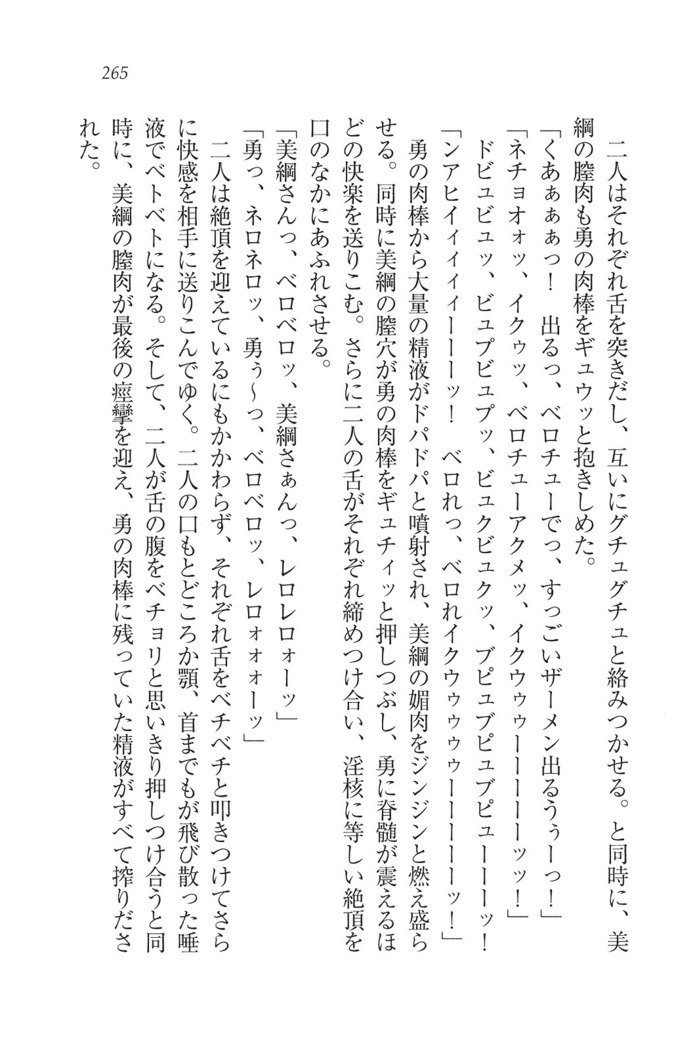 265
二人はそれぞれ舌を突きだし、互いにグチュグチュと絡みつかせる。と同時に、美
綱の膣肉も勇の肉棒をギュウッと抱きしめた。
「くあぁぁぁっ！　出るっ、ベロチューでっ、すっごいザーメン出るうぅーっ！」
「ネチョオォッ、イクゥッ、ベロチューアクメッ、イクウゥゥーーーーーッッ！」
ドビュビュッ、ビュプビュプッ、ビュクビュクッ、ブピュブピュブピューーーッ！
「ンアヒイィィィィーーーッ！　ベロれっ、ベロれイクウゥゥゥゥーーーーーッ！」
勇の肉棒から大量の精液がドパドパと噴射され、美綱の媚肉をジンジンと燃え盛ら
せる。同時に美綱の膣穴が勇の肉棒をギュチィッと押しつぶし、勇に脊髄が震えるほ
どの快楽を送りこむ。さらに二人の舌がそれぞれ締めつけ合い、淫核に等しい絶頂を
口のなかにあふれさせる。
「美綱さんっ、ベロベロッ、美綱さぁんっ、レロレロォーッ」
「勇っ、ネロネロッ、勇ぅ～っ、ベロベロッ、レロォォォーッ」
二人は絶頂を迎えているにもかかわらず、それぞれ舌をベチベチと叩きつけてさら
に快感を相手に送りこんでゆく。二人の口もとどころか顎、首までもが飛び散った唾
液でベトベトになる。そして、二人が舌の腹をベチョリと思いきり押しつけ合うと同
時に、美綱の膣肉が最後の痙攣を迎え、勇の肉棒に残っていた精液がすべて搾りださ
れた。